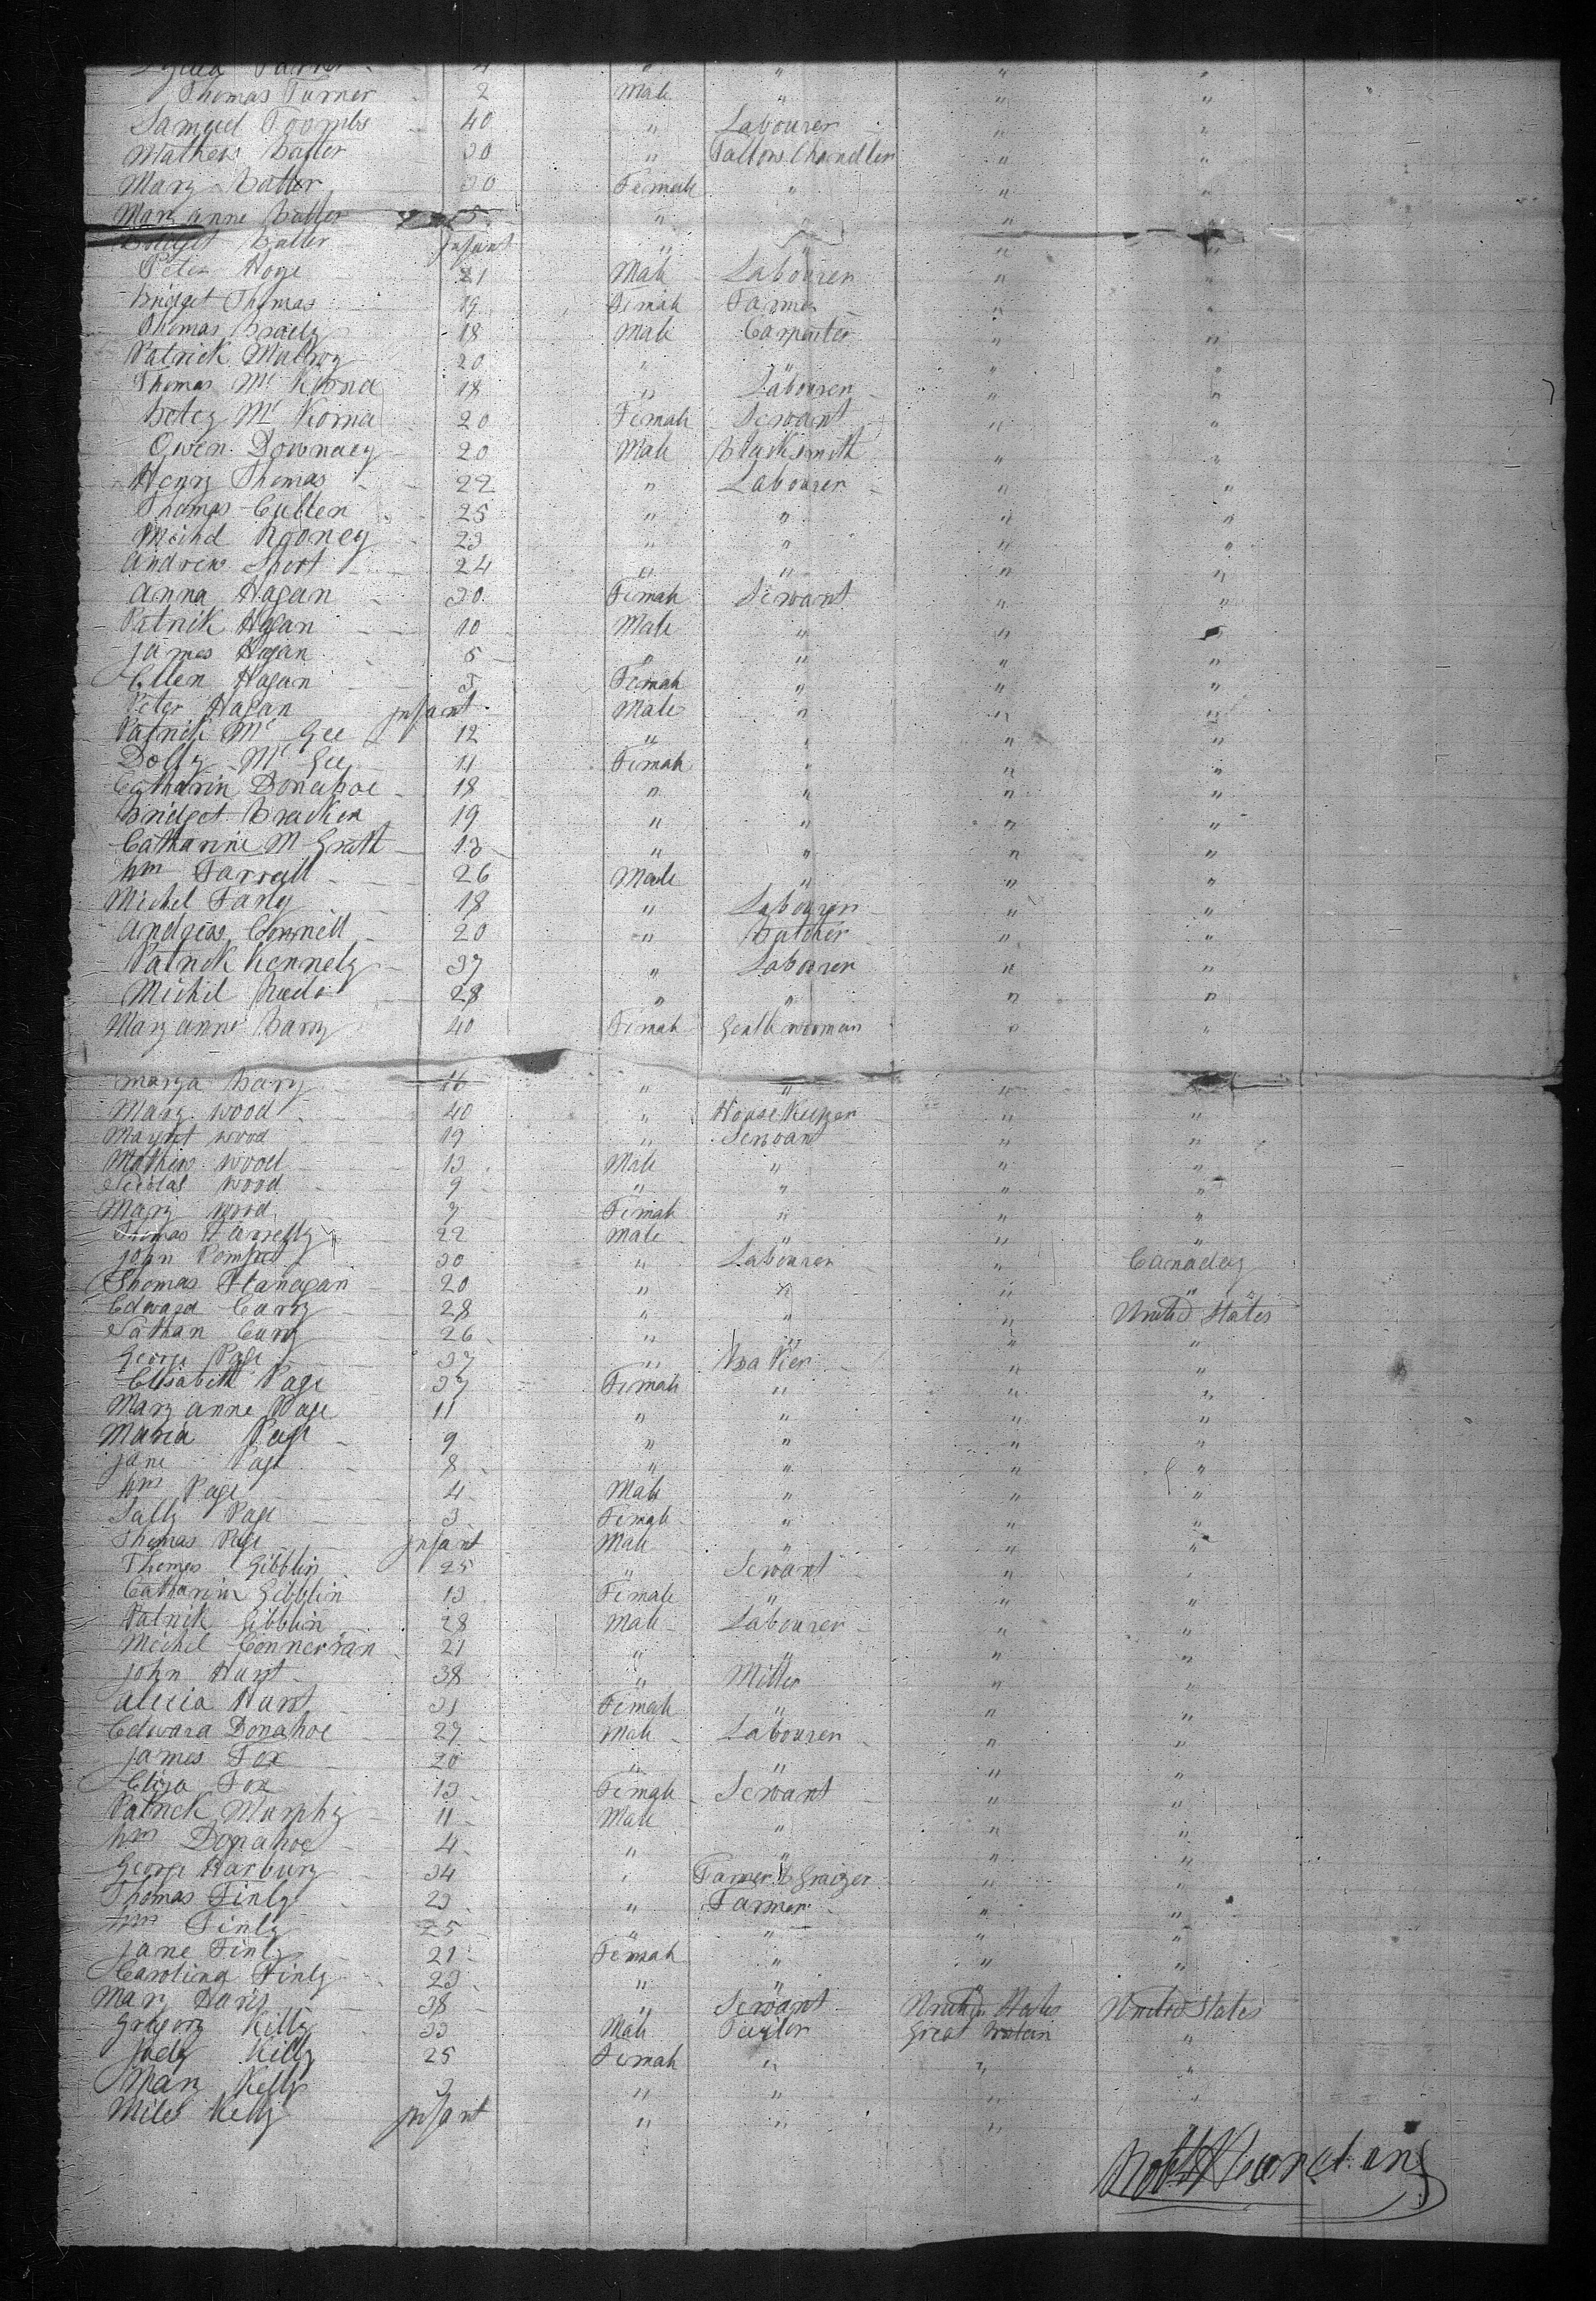 Thomas Turner 2 Male " " "
Samuel Toombs 40 " Labourer " "
Mathew Butler 30 " Tallow Chandler " "
Mary Butler 30 Female " " "
Mary anne Butler 5 " " " "
Bridget Butler infant " " " "
Peter Hoge 21 Male Labourer " "
Bridget Thomas 19 Female Farmer " "
Thomas Brady 18 Male Carpenter " "
Patrick Mulroy 20 " " " "
Thomas Mc Kerna 18 " Labourer " "
Betey Mc Kerna 20 Female Servant " "
Owen Downaey 20 Male Blacksmith " "
Henry Thomas 22 " Labourer " "
Thomas Cullen 25 " " " "
Michd Rooney 23 " " " "
Andrew Short 24 " " " "
Anna Hagan 30 Female Servant " "
Patrik Hagan 10 Male " " "
James Hagan 5 " " " "
Ellen Hagan 3 Female " " "
Peter Hagan infant Male " " "
Patrik Mc Gee 12 " " " "
Dolly Mc Gee 11 Female " " "
Catharin Donahoe 18 " " " "
Bridget Bracken 19 " " " "
Catharine M Grath 13 " " " "
Wm Farrell 26 Male " " "
Michel Farly 18 " Labourer " "
Andrew Connell 20 " Butcher " "
Patrick Kennely 37 " Labourer " "
Michel 28 " " " "
Mary anne Barry 40 Female Gentlewoman " "
Marya Bary 16 " " " "
Mary Wood 40 " House Keeper " "
Margret Wood 19 " Servant " "
Mathew Wood 13 Male " " "
Nicolas Wood 9 " " " "
Mary Wood 7 Female " " "
Thomas Farrelly 22 Male " " "
John 30 " Labourer " Canaday
Thomas Flanagan 20 " " " "
Edward Cary 28 " " " United States
Nathan Cury 26 " " " "
George Page 37 " Baker " "
Elisabeth Page 37 Female " " "
Mary anne Page 11 " " " "
Maria Page 9 " " " "
Jane Page 8 " " " "
Wm Page 4 Male " " "
Sally Page 3 Female " " "
Thomas Page infant Male " " "
Thomas Gibblin 25 " Servant " "
Catharin Gibblin 13 Female " " "
Patrik Gibblin 28 Male Labourer " "
Michel Connerran 21 " " " "
John Hunt 38 " Miller " "
Alicia Hunt 31 Female " " "
Edward Donahoe 27 Male Labourer " "
James Fox 20 " " " "
Eliza Fox 13 Female Servant " "
Patrick Murphy 11 Male " " "
Wm Donahoe 4 " " " "
George Harbury 34 " Farmer & Graizer " "
Thomas Finly 23 " Farmer " "
Wm Finly 25 " " " "
Jane Finly 21 Female " " "
Carolina Finly 23 " " " "
Mary Haris 38 " Servant United States United States
Gregory Killy 33 Male Taylor Great Brotain "
Judy Killy 25 Female " " "
Mary Kelly 3 " " " "
Miles Kelly infant " " "